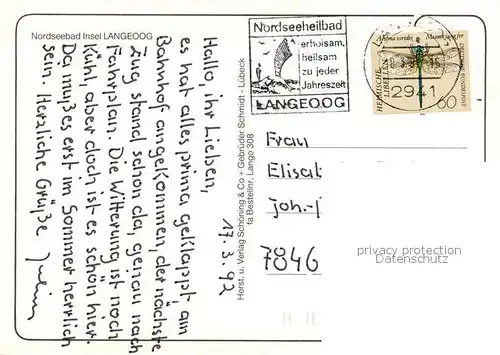 Nordseebad Insel LANGEOOG
Hallo, ihr Lieben,
es hat alles prima geklappt, am
Bahnhof angekommen, der nächste
Zug stand schon da, genau nach
Fahrplan. Die Witterung ist noch
Kühl, aber doch ist es schön hier.
Da muß es erst im Sommer herrlich
sein. Herzliche Grüße
17.3.92
Herst. u. Verlag Schöning & Co + Gebrüder Schmidt - Lübeck
fa Bestellnr. Lango 308
Nordseeheilbad
erholsam,
heilsam
zu jeder
Jahreszeit
LANGEOOG
2941
60
Frau
Elisab
Joh.-
7846
privacy protection
VERKÄUFER